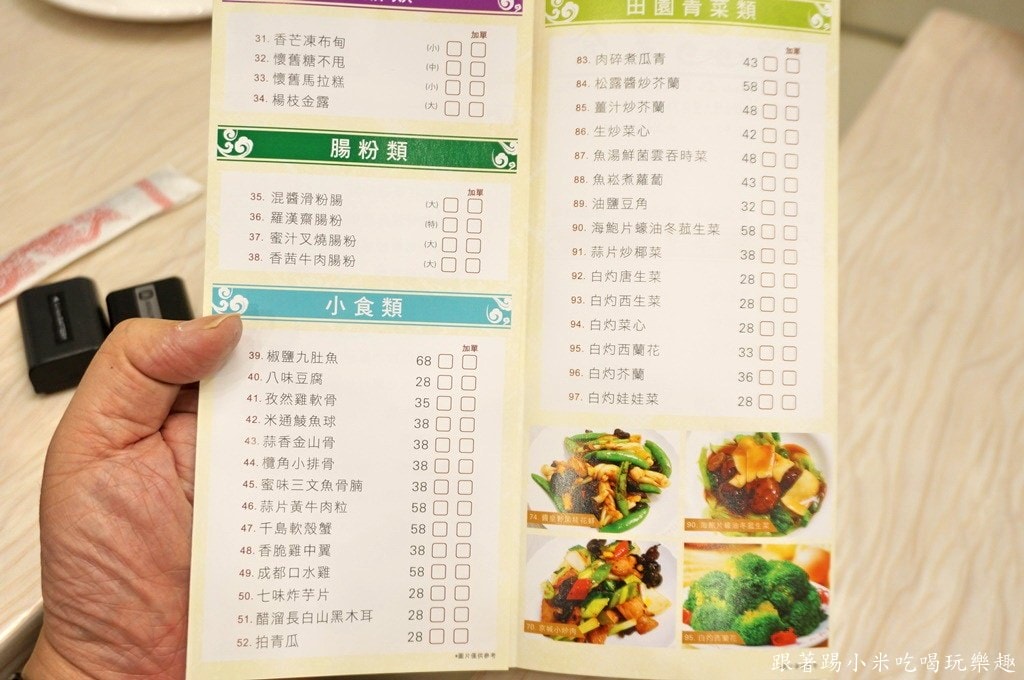 加單
31. 香芒凍布甸 (小)
32. 懷舊糖不甩 (中)
33. 懷舊馬拉糕 (小)
34. 楊枝金露 (大)
腸粉類
加單
35. 混醬滑粉腸 (大)
36. 羅漢齋腸粉 (特)
37. 蜜汁叉燒腸粉 (大)
38. 香茜牛肉腸粉 (大)
小食類
加單
39. 椒鹽九肚魚 68
40. 八味豆腐 28
41. 孜然雞軟骨 35
42. 米通鯪魚球 38
43. 蒜香金山骨 38
44. 欖角小排骨 38
45. 蜜味三文魚骨腩 38
46. 蒜片黃牛肉粒 58
47. 千島軟殼蟹 58
48. 香脆雞中翼 38
49. 成都口水雞 58
50. 七味炸芋片 28
51. 醋溜長白山黑木耳 28
52. 拍青瓜 28
*圖片僅供參考
田園青菜類
加單
83. 肉碎煮瓜青 43
84. 松露醬炒芥蘭 58
85. 薑汁炒芥蘭 48
86. 生炒菜心 42
87. 魚湯鮮菌雲吞時菜 48
88. 魚崧煮蘿蔔 43
89. 油鹽豆角 32
90. 海鮑片蠔油冬菰生菜 58
91. 蒜片炒椰菜 38
92. 白灼唐生菜 28
93. 白灼西生菜 28
94. 白灼菜心 28
95. 白灼西蘭花 33
96. 白灼芥蘭 36
97. 白灼娃娃菜 28
74.
90. 海鮑片蠔油冬菰生菜
70.
95. 白灼西蘭花
跟著踢小米吃喝玩樂趣